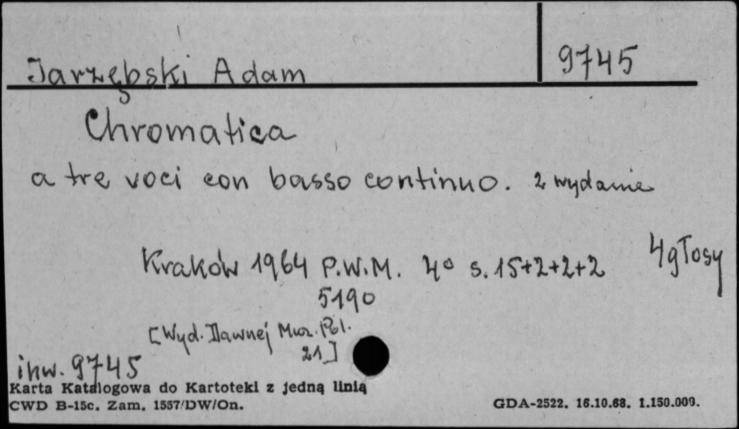 Jarzębski Adam 9745
Chromatica
a tre voci con basso continuo. 2 wydanie
Kraków 1964 P.W.M. 4° s. 15+2+2+2 4 głosy
5190
[Wyd. Dawnej Muz. Pol.
21]
inw. 9745
Karta Katalogowa do Kartoteki z jedną linią
CWD B-15c. Zam. 1557/DW/On. GDA-2522. 16.10.68. 1.150.009.